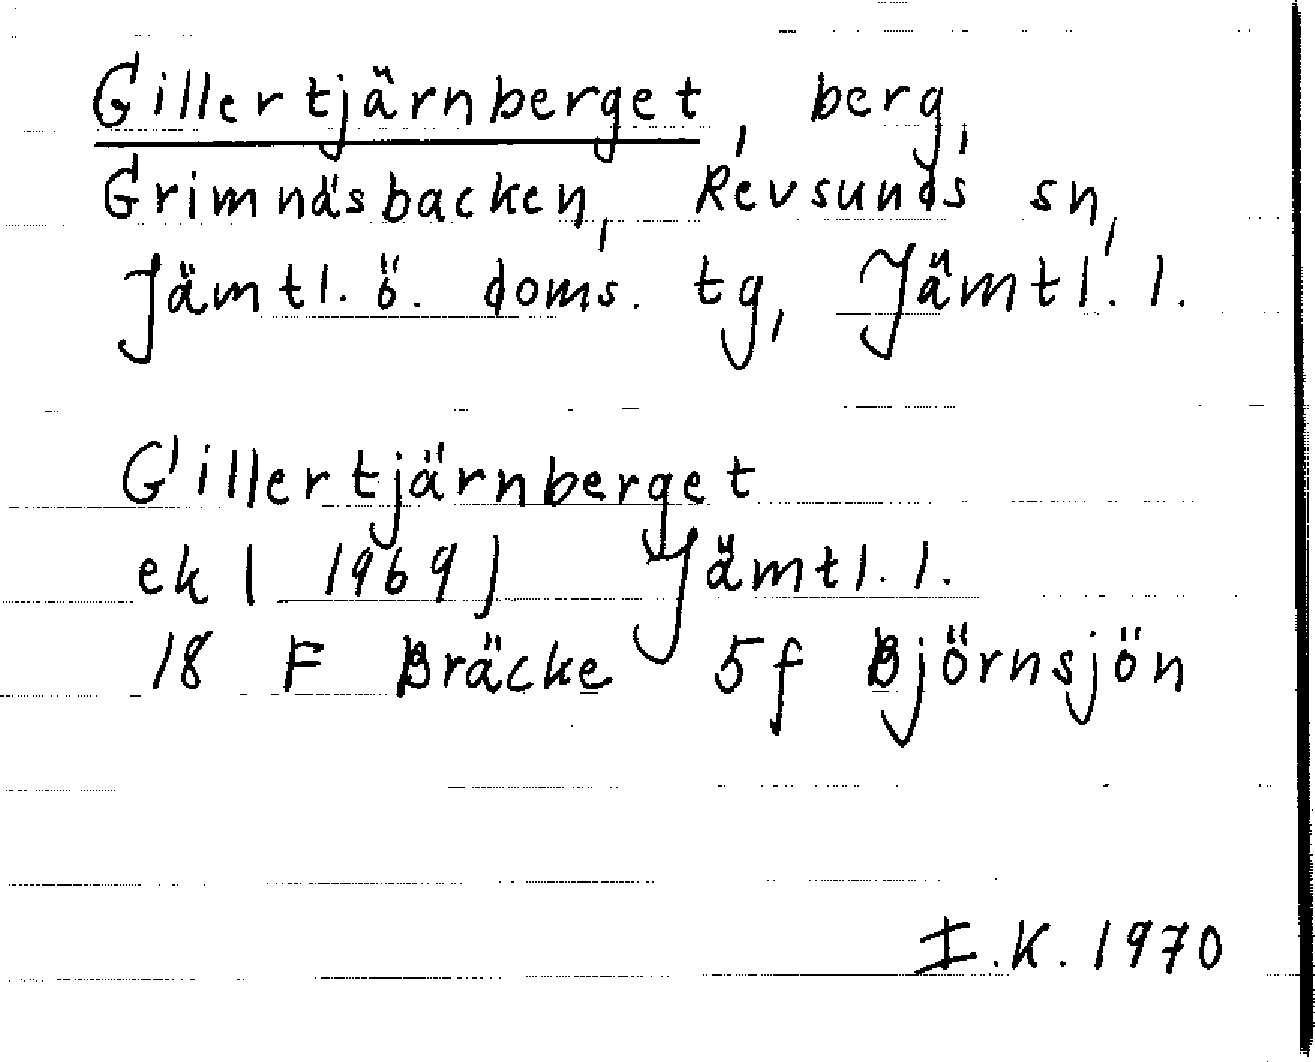 Gillertjärnberget, berg,
Grimnäsbacken, Revsunds sn,
Jämtl. ö. doms. tg, Jämtl. l.
Gillertjärnberget
ek (1969) Jämtl. l.
18 F Bräcke 5f Björnsjön
I.K. 1970